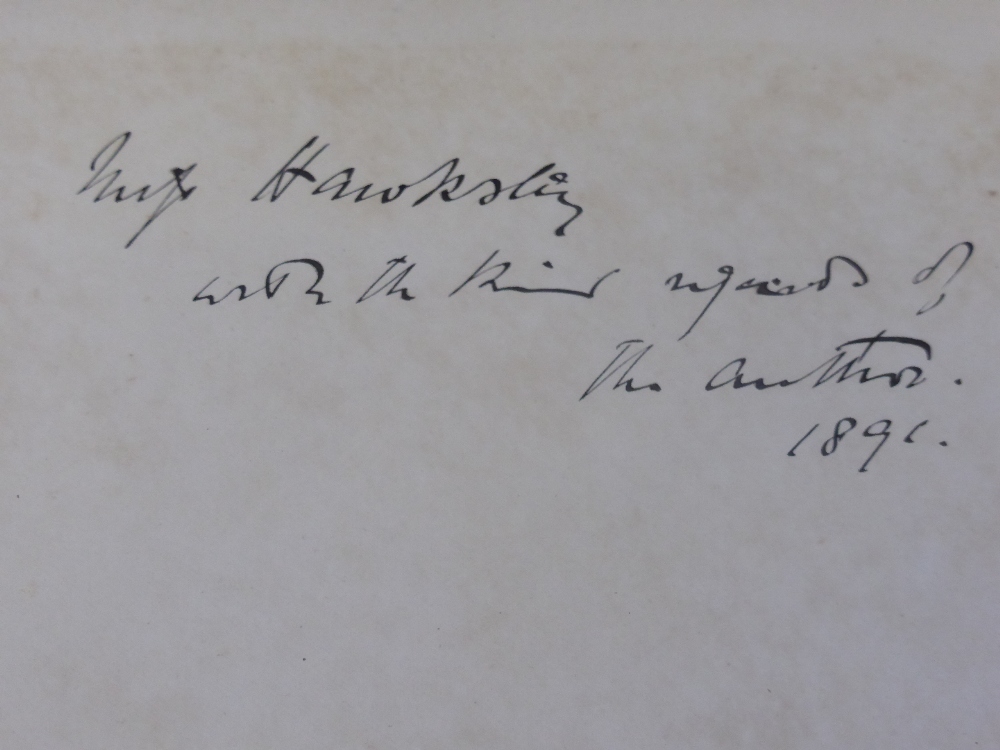 Miss Hawksley
with the kind regards of
The author.
1891.